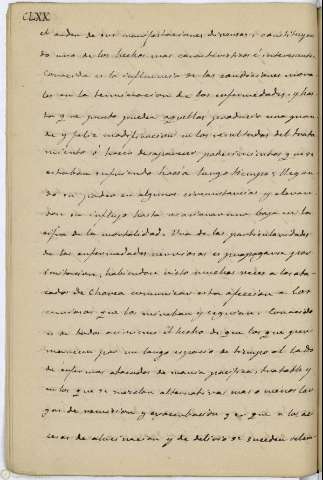 CLXX
el orden de sus manifestaciones diversas; constituyen
do uno de los hechos mas caracteristicos é interesante.
Conocida es la influencia de las condiciones mora
les en la terminacion de las enfermedades, y has
ta que punto pueden aquellas producir una gran
de y feliz modificacion en los resultados del trata
miento ó hacer desaparecer padecimientos que se
estaban sufriendo hacia largo tiempo; llegan
do su poder en algunas circunstancias y elevan
don su influjo hasta ocasionar una baja en la
cifra de la mortalidad. Una de las particularidades
de las enfermedades nerviosas es propagarse por
imitacion, habiendose visto muchas veces a los ata
cados de Chorea comunicar esta afeccion a los
curiosos que los miraban y seguian. Conocido
es de todos asimismo el hecho de que los que per
manecen por un largo espacio de tiempo al lado
de enfermos atacados de mania pacifica, tratable y
en los que se notan alternativas mas o menos lar
gas de remision y exacerbacion y en que a los ac
cesos de alucinacion y de delirio se suceden